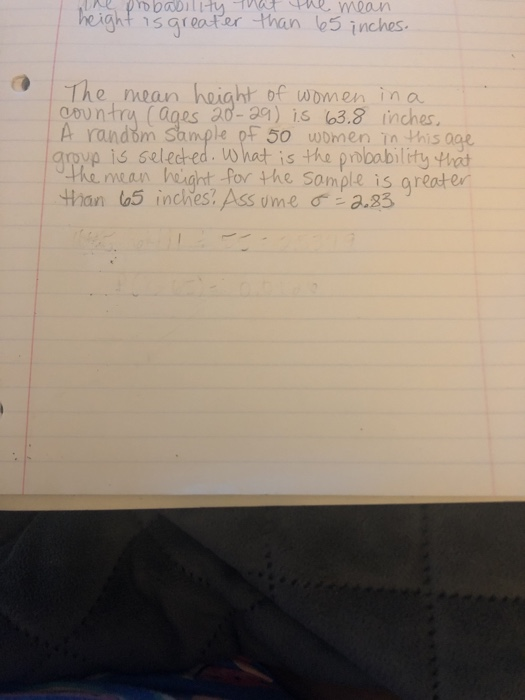 the probability that the mean
height is greater than 65 inches.
The mean height of women in a
country (ages 20-29) is 63.8 inches.
A random sample of 50 women in this age
group is selected. What is the probability that
the mean height for the sample is greater
than 65 inches? Assume σ = 2.83